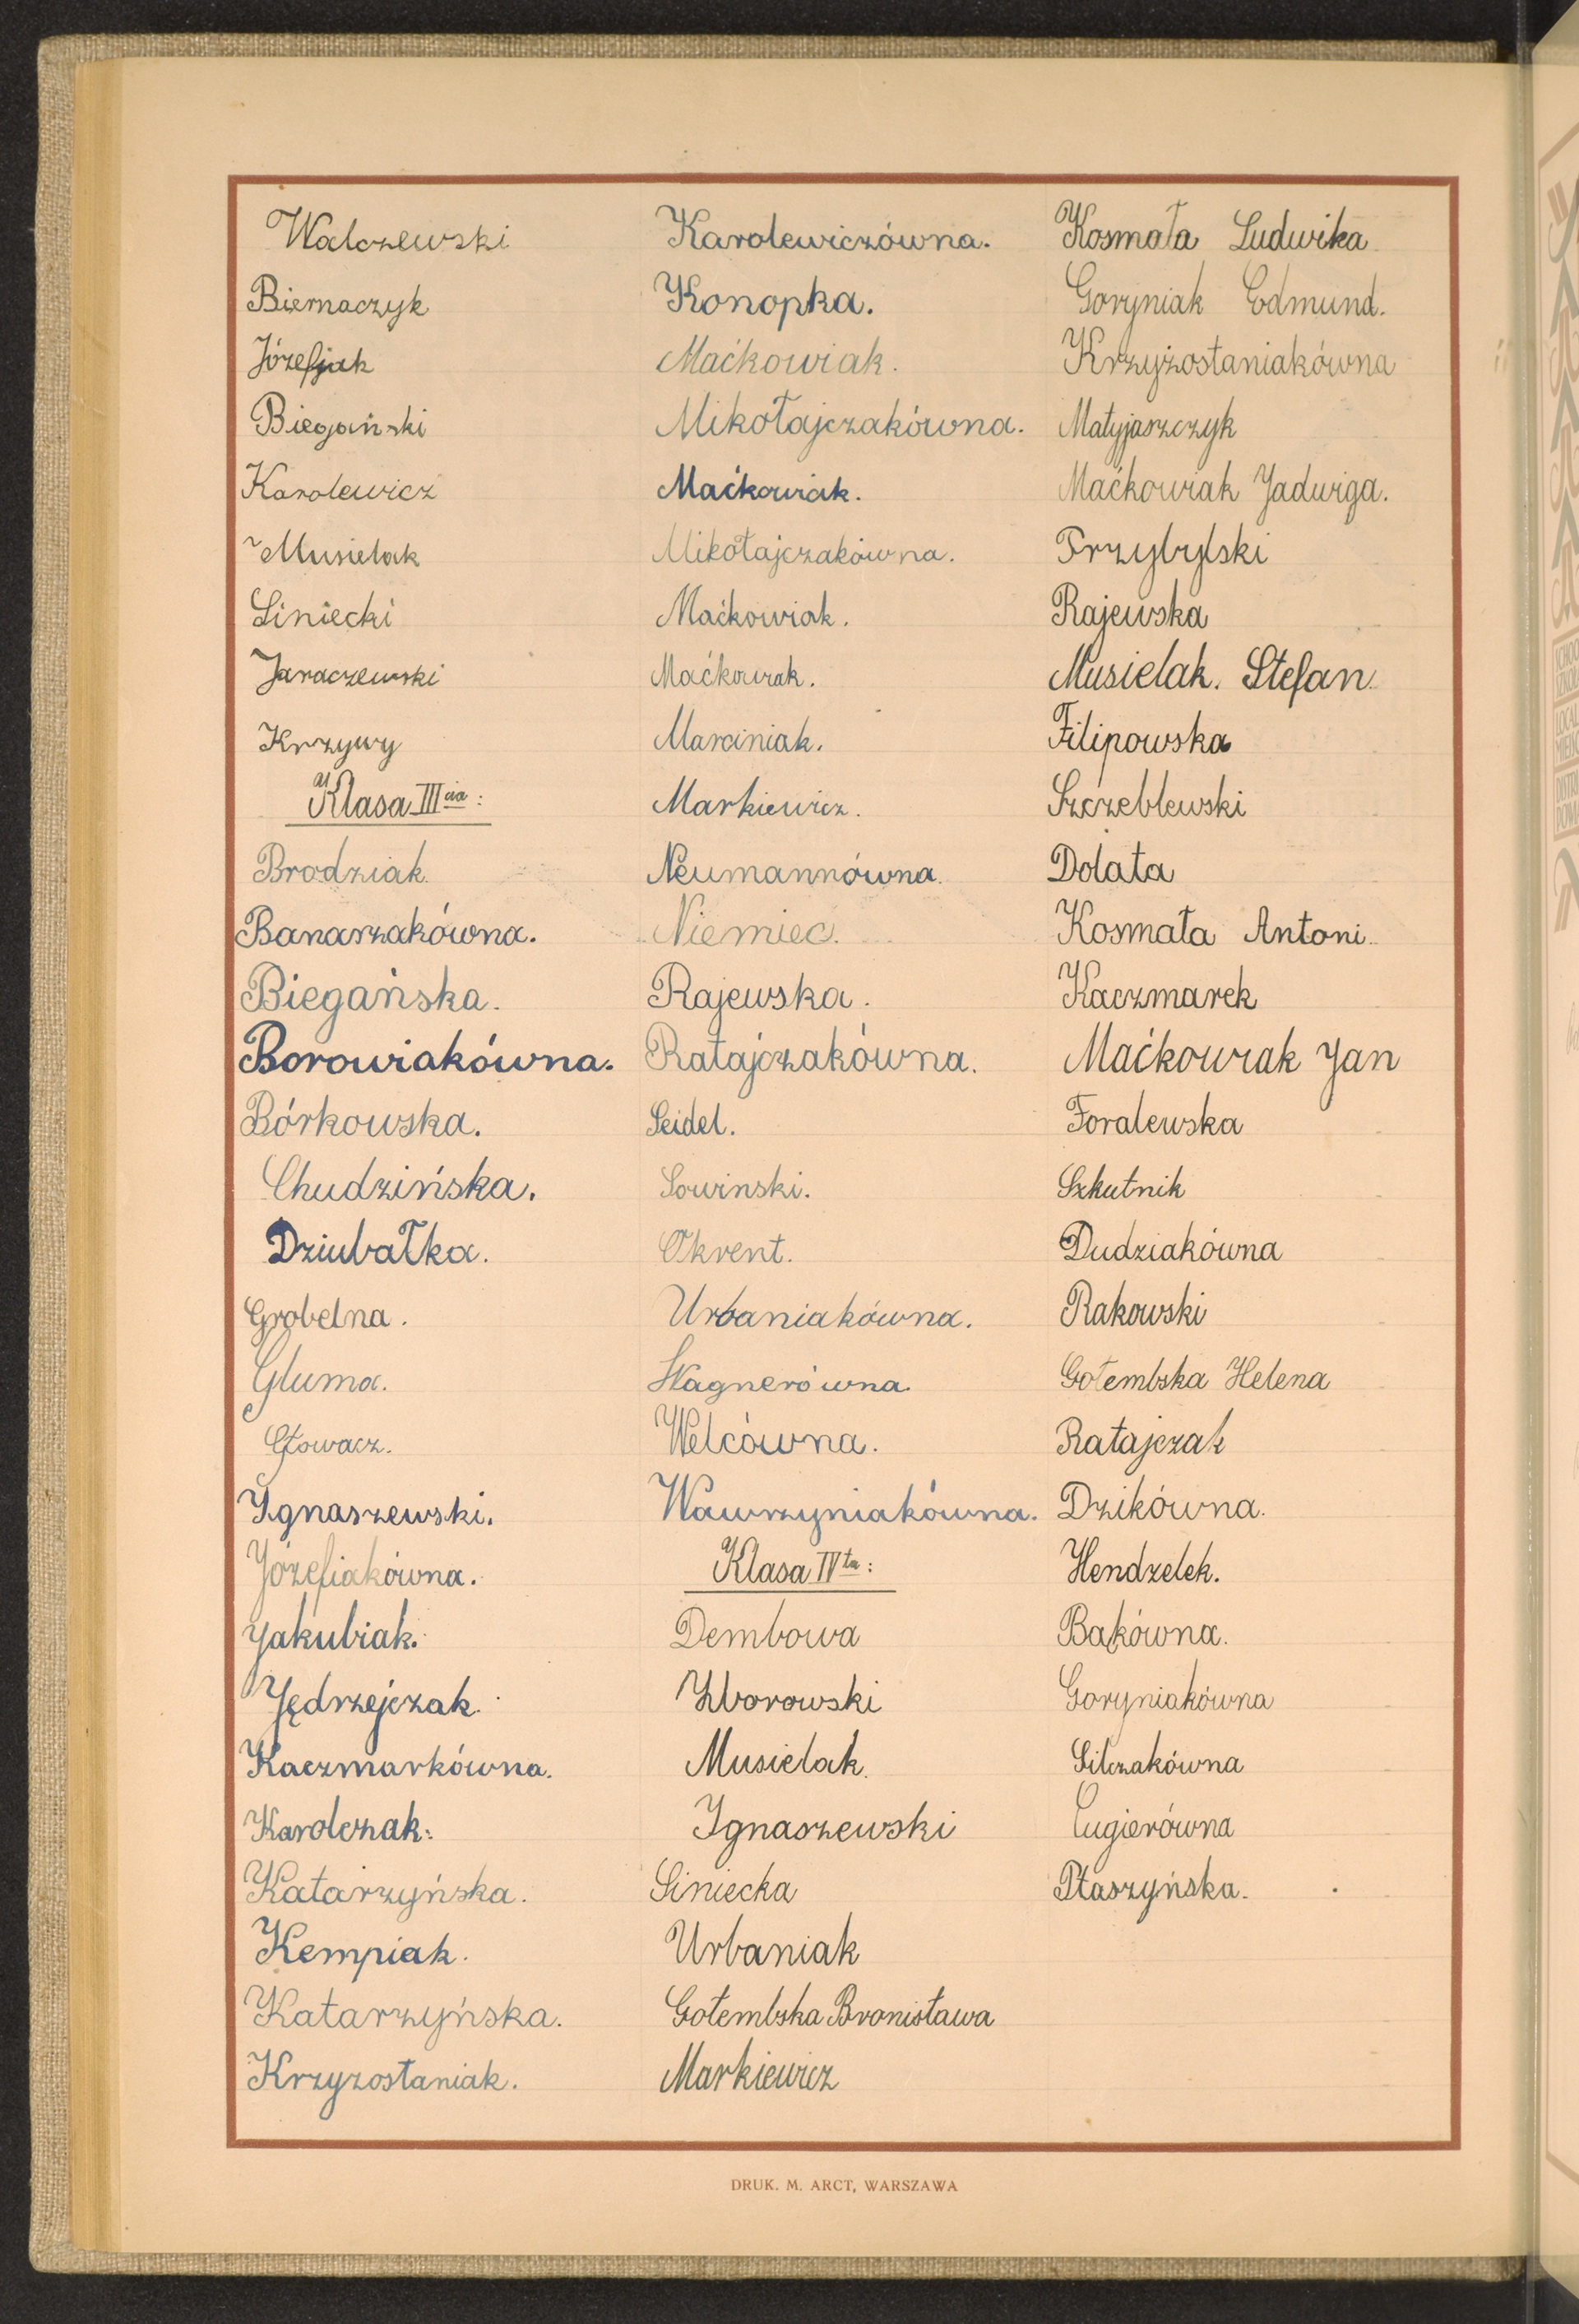 Walczewski
Biernaczyk
Józefjak
Biegański
Karolewicz
Musielak
Liniecki
Jaraczewski
Krzywy
Klasa III cia:
Brodziak.
Banaszakówna.
Biegańska.
Borowiakówna.
Bórkowska.
Chudzińska.
Dziubałka.
Grobelna.
Gluma.
Głowacz.
Ignaszewski.
Józefiakówna.
Jakubiak.
Jędrzejczak.
Kaczmarkówna.
Karolczak.
Katarzyńska.
Kempiak.
Katarzyńska.
Krzyzostaniak.
Karolewiczówna.
Konopka.
Maćkowiak.
Mikołajczakówna.
Maćkowiak.
Mikołajczakówna.
Maćkowiak.
Maćkowiak.
Marciniak.
Markiewicz.
Neumannówna.
Niemiec.
Rajewska.
Ratajczakówna.
Seidel.
Sowinski.
Okrent.
Urbaniakówna.
Wagnerówna.
Welcówna.
Wawrzyniakówna.
Klasa IV ta:
Dembowa
Zborowski
Musielak.
Ignaszewski
Siniecka
Urbaniak
Gołembska Bronisława
Markiewicz
Kosmała Ludwika
Goryniak Edmund.
Krzyżostaniakówna
Matyjaszczyk
Maćkowiak Jadwiga.
Przybylski
Rajewska
Musielak. Stefan.
Filipowska
Szczeblewski
Dolata
Kosmała Antoni.
Kaczmarek
Maćkowiak Jan
Foralewska
Szkutnik
Dudziakówna
Rakowski
Gołembska Helena
Ratajczak
Dzikówna.
Hendzelek.
Bąkówna.
Goryniakówna
Silczakówna
Cugierówna
Ptaszyńska.
DRUK. M. ARCT, WARSZAWA